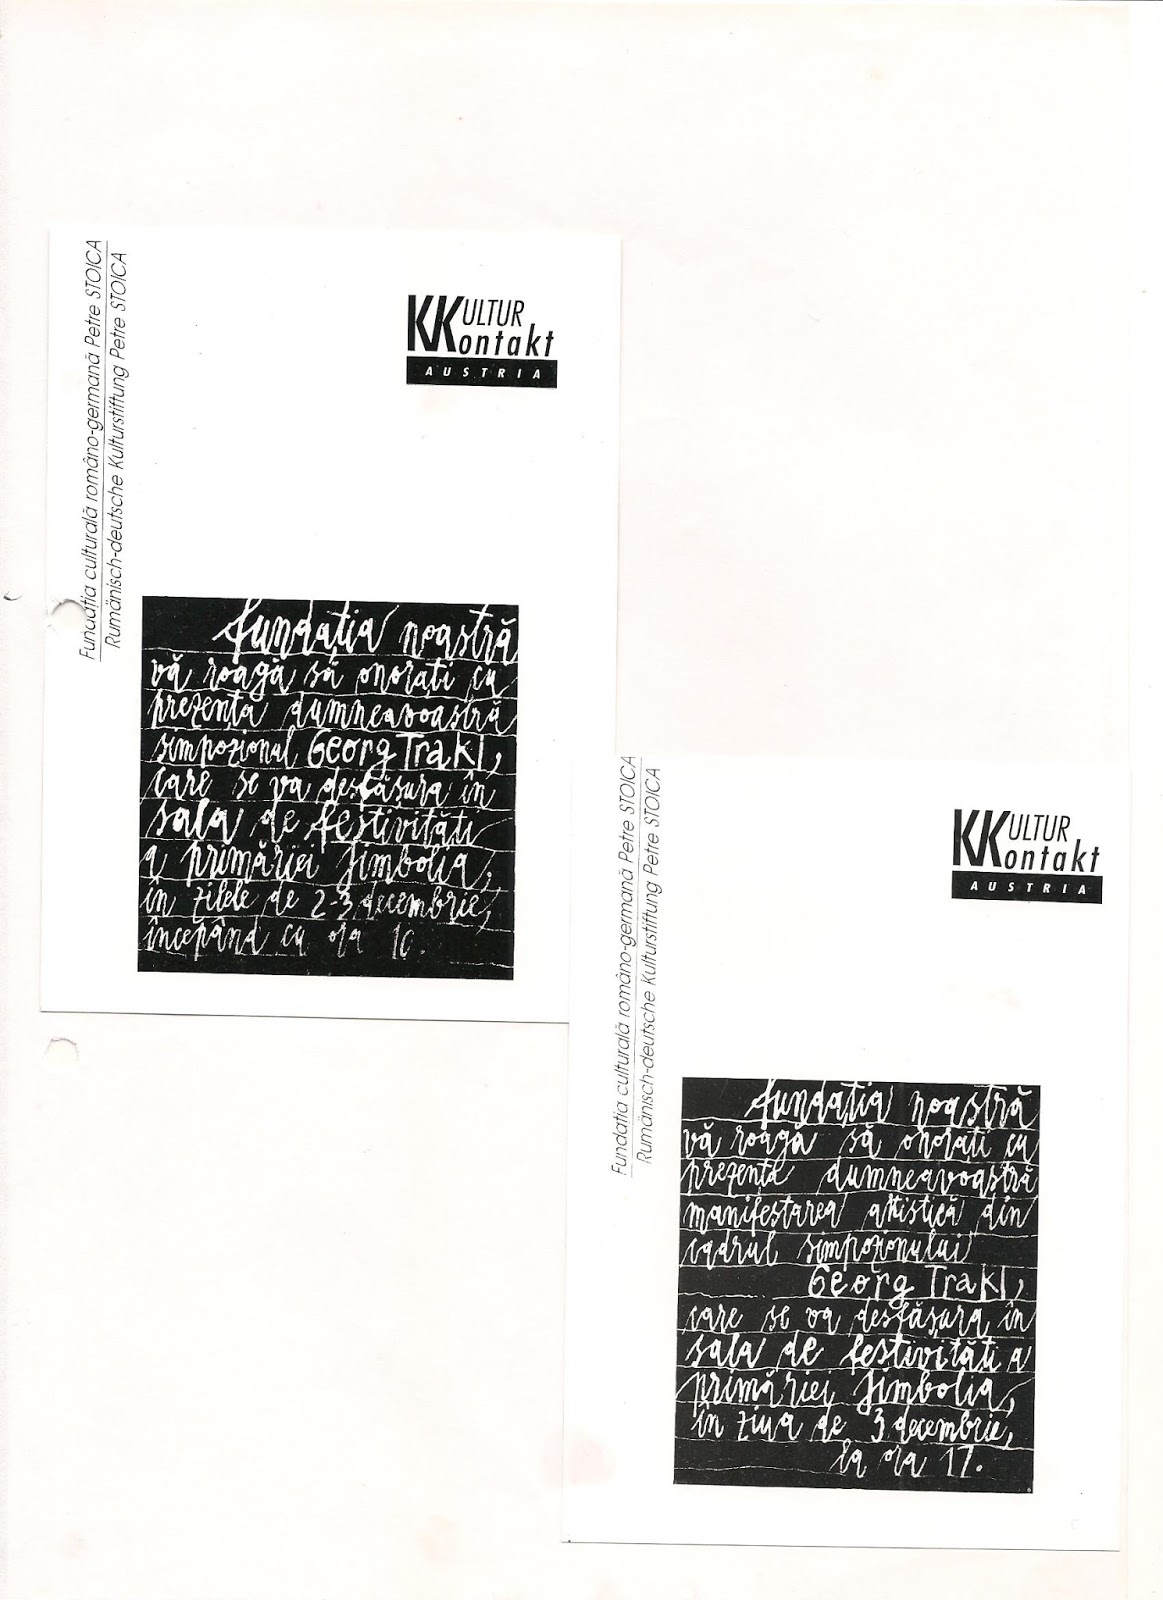 Fundația culturală româno-germană Petre STOICA
Rumänisch-deutsche Kulturstiftung Petre STOICA
KKULTUR
Kontakt
AUSTRIA
fundația noastră
vă roagă să onorați cu
prezența dumneavoastră
simpozionul Georg Trakl,
care se va desfășura în
sala de festivități
a primăriei Jimbolia,
în zilele de 2-3 decembrie,
începând cu ora 10.
Fundația culturală româno-germană Petre STOICA
Rumänisch-deutsche Kulturstiftung Petre STOICA
KKULTUR
Kontakt
AUSTRIA
fundația noastră
vă roagă să onorați cu
prezența dumneavoastră
manifestarea artistică din
cadrul simpozionului
Georg Trakl,
care se va desfășura în
sala de festivități a
primăriei Jimbolia,
în ziua de 3 decembrie,
la ora 17.